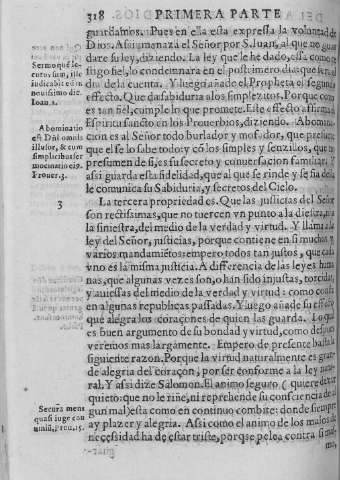 318 PRIMERA PARTE
guardamos. Pues en ella esta expressa la voluntad de
Dios. Assi amanaza el Señor por S. Juan, al que no guar
dare su ley, diziendo. La ley que le he dado, essa como te
Sermo quē lo-
stigo fiel, lo condennara en el postrimero dia que sera el
cutus sum, ille
dia de la cuenta. Y luego añade el Propheta el segundo
iudicabit eū in
nouissimo die.
effecto. Que da sabiduria a los simplezitos. Porque como
Ioan. 1.
es tan fiel, cumple lo que promete. Este effecto affirma el
Espiritu sancto en los Prouerbios, diziendo. Abomina-
Abominatio
cion es al Señor todo burlador y mofador, que presume
est Dñi omnis
illusor, & cum
que el se lo sabe todo: y cō los simples y senzillos, que no
simplicibus ser
presumen de si, es su secreto y conuersacion familiar. Y
mocinatio eius.
assi guarda esta fidelidad, que al que se rinde y se fia de el
Prouer. 3.
le comunica su Sabiduria, y secretos del Cielo.
3
La tercera propriedad es. Que las justicias del Señor
son rectissimas, que no tuercen vn punto a la diestra, ni a
la siniestra, del medio de la verdad y virtud. Y llama a la
ley del Señor, justicias, porque contiene en si muchas y
varios mandamiētos: empero todos tan justos, que cada
vno es la misma justicia. A differencia de las leyes huma
nas, que algunas vezes son, o han sido injustas, torcidas
y auiessas del medio de la verdad y virtud: como consta
en algunas republicas passadas. Y luego añade su effecto
que alegra los coraçones de quien las guarda. Lo que
es buen argumento de su bondad y virtud, como despues
veremos mas largamēte. Empero de presente basta la
siguiente razon. Porque la virtud naturalmente es gran
de alegria del coraçon, por ser conforme a la ley natu-
ral. Y assi dize Salomon. El animo seguro ( quiere dezir
quieto: que no le riñe, ni reprehende su consciencia de al
Secura mens
gun mal) esta como en continuo combite: donde siempre
quasi iuge con
ay plazer y alegria. Assi como el animo de los malos de
uiuiū, Prou. 15.
necessidad ha de estar triste, porque pelea contra si mis-
mo,